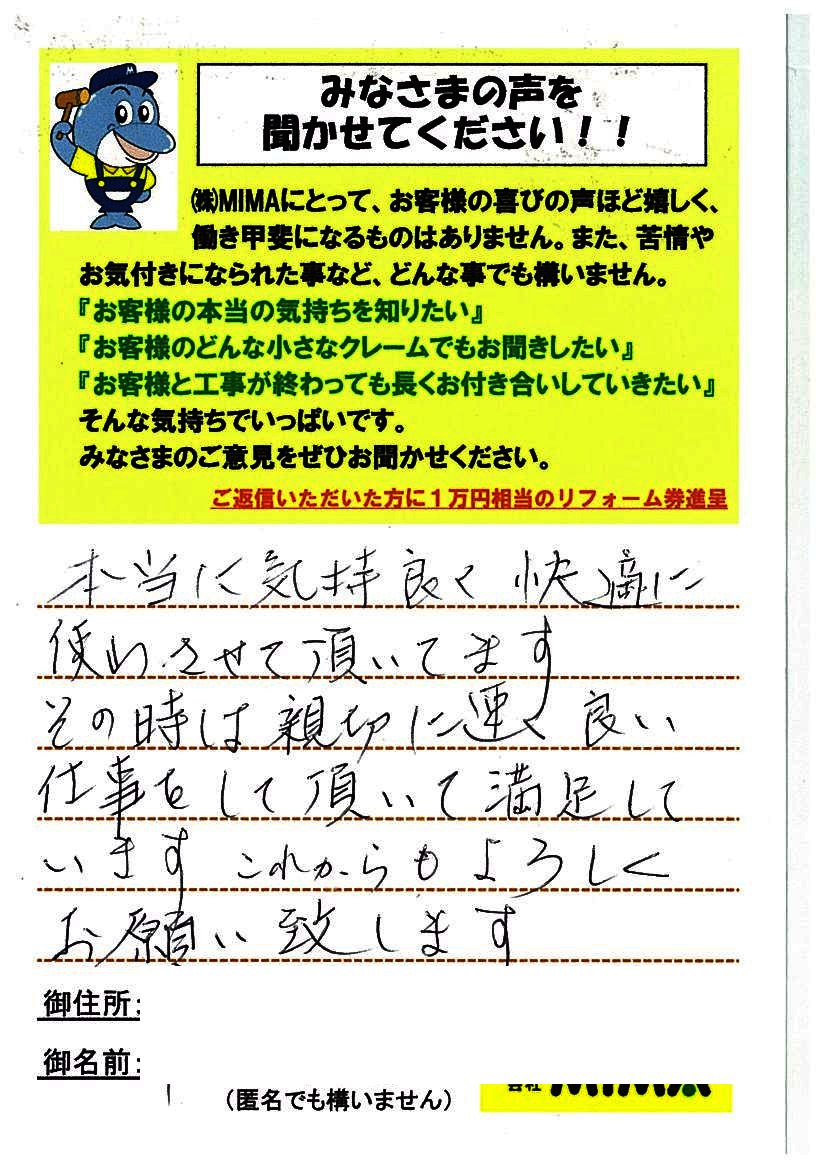 みなさまの声を
聞かせてください！！
㈱MIMAにとって、お客様の喜びの声ほど嬉しく、
働き甲斐になるものはありません。また、苦情や
お気付きになられた事など、どんな事でも構いません。
『お客様の本当の気持ちを知りたい』
『お客様のどんな小さなクレームでもお聞きしたい』
『お客様と工事が終わっても長くお付き合いしていきたい』
そんな気持ちでいっぱいです。
みなさまのご意見をぜひお聞かせください。
ご返信いただいた方に１万円相当のリフォーム券進呈
本当に気持良く快適に
使わさせて頂いてます
その時は親切に速く良い
仕事をして頂いて満足して
います これからもよろしく
お願い致します
御住所：
御名前：
（匿名でも構いません）
会社 MIMA